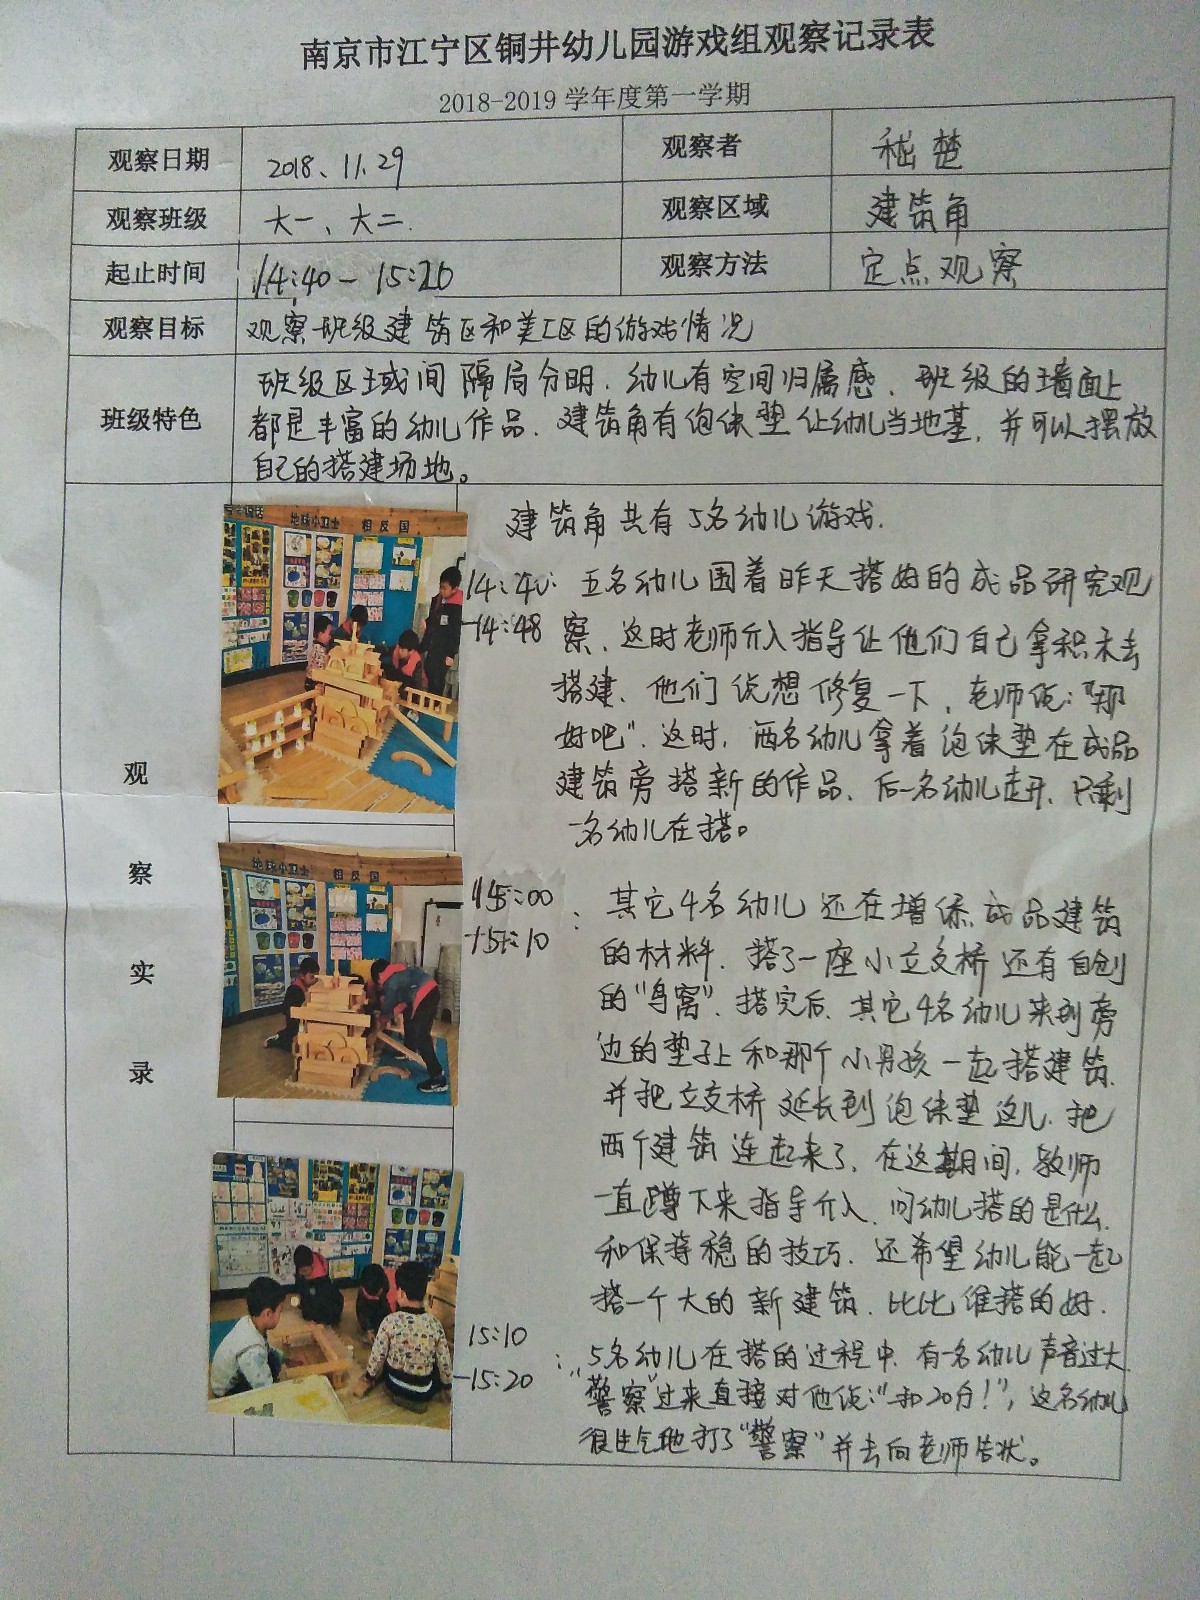 南京市江宁区铜井幼儿园游戏组观察记录表
2018-2019 学年度第一学期
观察日期 2018、11.29 观察者 嵇楚
观察班级 大一、大二. 观察区域 建筑角
起止时间 14:40 - 15:20 观察方法 定点观察
观察目标 观察班级建筑区和美工区的游戏情况
班级特色
班级区域间隔局分明.幼儿有空间归属感.班级的墙面上
都是丰富的幼儿作品.建筑角有泡沫垫让幼儿当地基,并可以摆放
自己的搭建场地。
观察实录
地球小卫士 相反国
建筑角共有5名幼儿游戏.
14:40 五名幼儿围着昨天搭好的成品研究观
-14:48 察.这时老师介入指导让他们自己拿积木去
搭建.他们说想修复一下,老师说:"那
好吧".这时,两名幼儿拿着泡沫垫在成品
建筑旁搭新的作品.后一名幼儿走开.只剩
一名幼儿在搭。
地球小卫士 相反国
15:00 其它4名幼儿还在增添成品建筑
-15:10 的材料.搭了一座小立交桥还有自创
的"鸟窝".搭完后.其它4名幼儿来到旁
边的垫子上和那个小男孩一起搭建筑.
并把立交桥延长到泡沫垫这儿.把
两个建筑连起来了.在这期间,教师
一直蹲下来指导介入.问幼儿搭的是什么.
和保持稳的技巧.还希望幼儿能一起
搭一个大的新建筑.比比谁搭的好.
15:10 5名幼儿在搭的过程中.有一名幼儿声音过大.
-15:20 "警察"过来直接对他说:"扣20分!",这名幼儿
很生气地打了"警察"并去向老师告状。